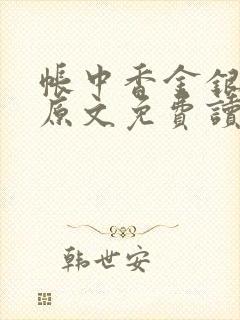 帳中香金銀
原文免費讀
韩世安